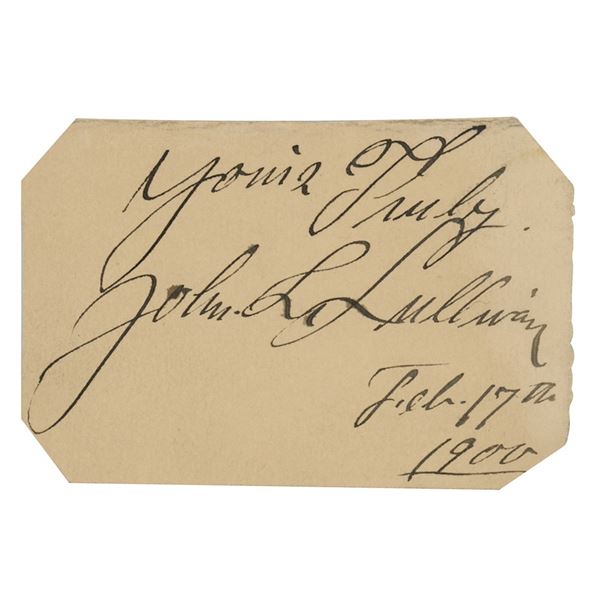 Yours Truly.
John. L. Sullivan
Feb. 17th
1900